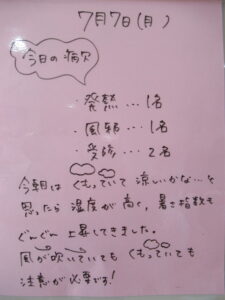 7月7日(月)
今日の病欠
・発熱…1名
・風邪…1名
・受診…2名
今朝は くもっていて 涼しいかな…と
思ったら 湿度が高く、暑さ指数も
ぐんぐん 上昇してきました。
風が吹いていても くもっていても
注意が必要です!